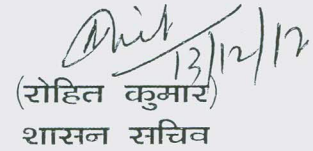 13/12/12
(रोहित कुमार)
शासन सचिव